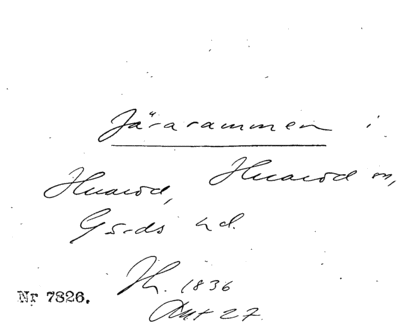 Järarammen i
Huaröd, Huaröd sn,
Gärds hd.
Jh. 1836
Akt 27
Nr 7826.